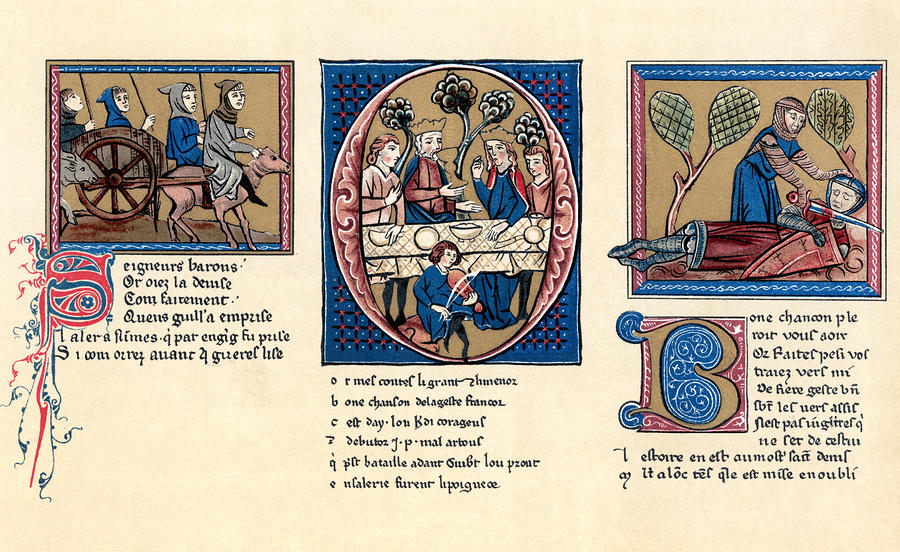 Seigneurs barons.
Or oiez la devise
Com fairement.
Quens guill'a emprise
aler a nimes. q par engig fu prise
Si com orrez avant q gueres lise
or mes contes li grant
bone chanson de la geste francor
cest day. lou
debutor .J. p. mal artous
bataille adant Guib't lou prout
furent
Bone chancon ple
roit vous aoir
Or Faites pes vos
traiez vers mi
De fiere geste bn
les vers assis
Nest pas q
ne set de cestui
lestoire en est au most' saīt denis
lōc tēs q'le est mise en oubli